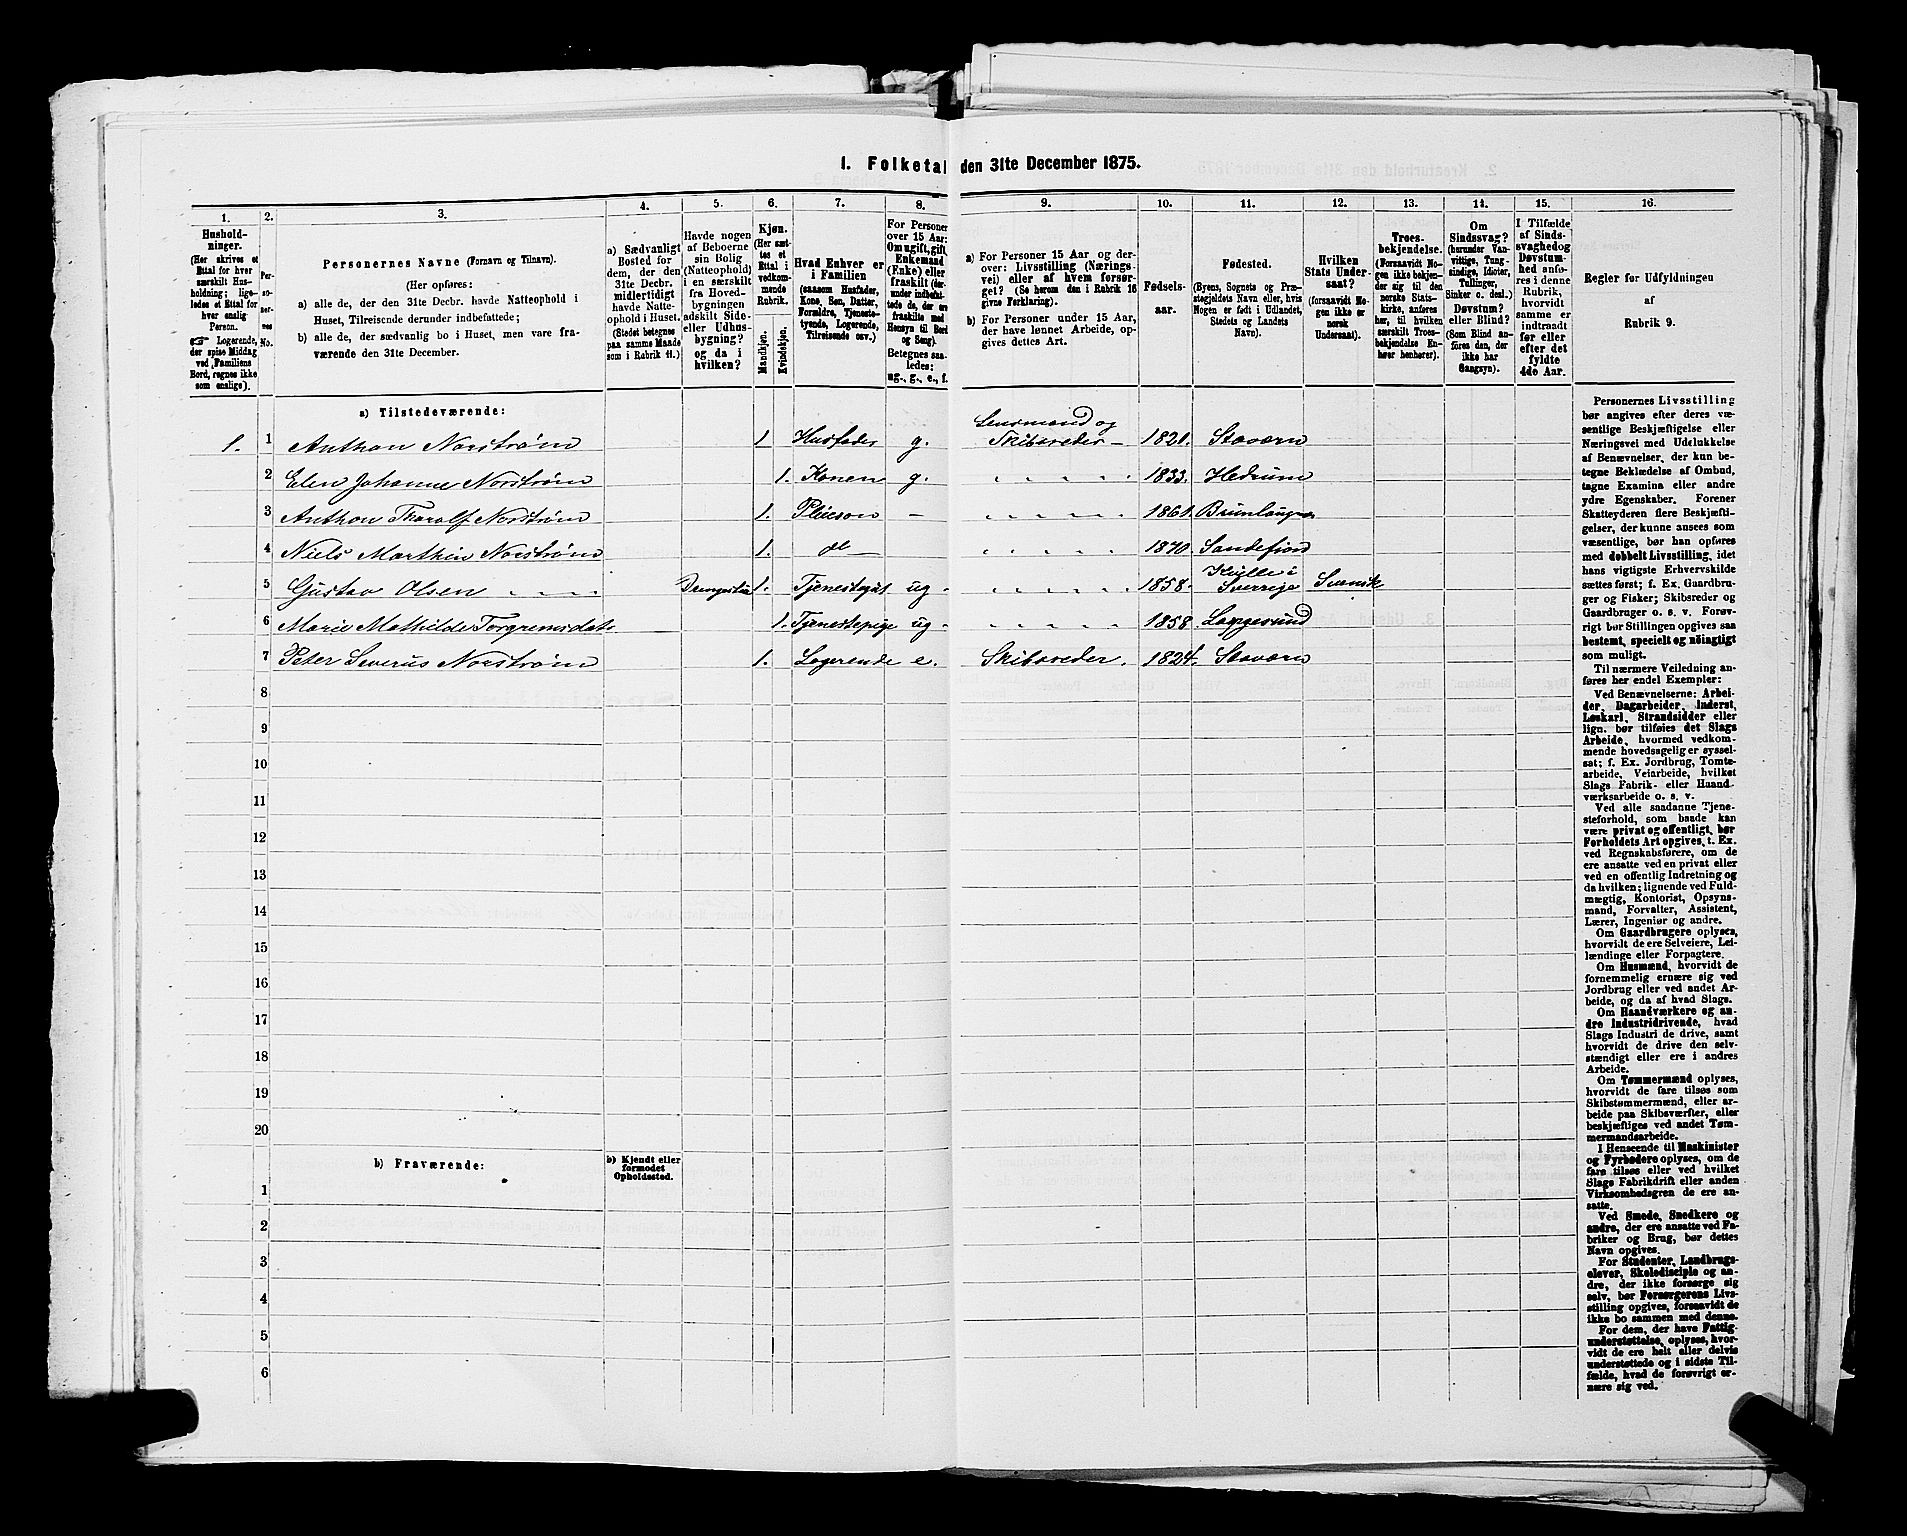 1. Folketal den 31te December 1875.
1.
Husholdninger.
(Her skrives et Ettal for hver særskilt Husholdning; ligeledes et Ettal for hver enslig Person.
☞ Logerende, der spise Middag ved Familiens Bord, regnes ikke som enslige).
2.
Personernes No.
3.
Personernes Navne (Fornavn og Tilnavn).
(Her opføres:
a) alle de, der den 31te Decbr. havde Natteophold i Huset, Tilreisende derunder indbefattede;
b) alle de, der sædvanlig bo i Huset, men vare fraværende den 31te December.
4.
a) Sædvanligt Bosted for dem, der den 31te Decbr. midlertidigt havde Natteophold i Huset.
(Stedet betegnes paa samme Maade som i Rubrik 11.)
5.
Havde nogen af Beboerne sin Bolig (Natteophold) i en særskilt fra Hovedbygningen adskilt Side- eller Udhusbygning? og da i hvilken?
6.
Kjøn.
(Her sættes et Ettal i vedkommende Rubrik.
Mandkjøn.
Kvindekjøn.
7.
Hvad Enhver er i Familien
(saasom Husfader, Kone, Søn, Datter, Forældre, Tjenestetyende, Logerende, Tilreisende osv.)
8.
For Personer over 15 Aar: Om ugift, gift, Enkemand (Enke) eller fraskilt
Betegnes saaledes: ug., g., e., f.
9.
a) For Personer 15 Aar og derover: Livsstilling (Næringsvei) eller af hvem forsørget? (Se herom den i Rubrik 16 givne Forklaring).
b) For Personer under 15 Aar, der have lønnet Arbeide, opgives dettes Art.
10.
Fødselsaar.
11.
Fødested.
(Byens, Sognets og Præstegjeldets Navn eller, hvis Nogen er født i Udlandet, Stedets og Landets Navn).
12.
Hvilken Stats Undersaat?
(forsaavidt Nogen ikke er norsk Undersaat).
13.
Troesbekjendelse.
(Forsaavidt Nogen ikke bekjender sig til den norske Statskirke, anføres her, til hvilken særskilt Troesbekjendelse Enhver henhører).
14.
Om Sindssvag?
(herunder Vanvittige, Tungsindige, Idioter, Tullinger, Sinker o. desl.)
Døvstum? eller Blind?
(Som Blind anføres den, der ikke har Gangsyn).
15.
I Tilfælde af Sindssvaghed og Døvstumhed anføres i denne Rubrik, hvorvidt samme er indtraadt før eller efter det fyldte 4de Aar.
16.
Regler for Udfyldningen af Rubrik 9.
a) Tilstedeværende:
1. 1 Anthon Norstrøm 1. Husfader g. Lensmand og Skibsreder 1821. Staværn
2 Elen Johanne Norstrøm 1. Konen g. " " " " 1833. Hedrum
3 Anthon Tharalf Norstrøm 1. Pleieson – " " " " 1861. Brunlaugnes
4 Niels Marthin Norstrøm 1. do " " " " 1870. Sandefjord
5 Gustav Olsen " " " 1. Tjenestegut ug " " " " 1858. Kville i Sverige Svensk
6 Marie Mathilde Torgrensdatr 1. Tjenestepige ug " " " " 1858. Langesund
7 Peter Severus Norstrøm 1. Logerende e. Skibsreder. 1824. Staværn
8
9
10
11
12
13
14
15
16
17
18
19
20
b) Fraværende:
b) Kjendt eller formodet Opholdssted.
1
2
3
4
5
6
Personernes Livsstilling
bør angives efter deres væ-
sentlige Beskjæftigelse eller
Næringsvei med Udelukkelse
af Benævnelser, der kun be-
tegne Beklædelse af Ombud,
tagne Examina eller andre
ydre Egenskaber. Forener
Skatteyderen flere Beskjæfti-
gelser, der kunne ansees som
væsentlige, bør han opføres
med dobbelt Livsstilling, idet
hans vigtigste Erhvervskilde
sættes først; f. Ex. Gaardbru-
ger og Fisker; Skibsreder og
Gaardbruger o. s. v. Forøv-
rigt bør Stillingen opgives saa
bestemt, specielt og nøiagtigt
som muligt.
Til nærmere Veiledning an-
føres her endel Exempler:
Ved Benævnelserne: Arbei-
der, Dagarbeider, Inderst,
Løskarl, Strandsidder eller
lign. bør tilføies det Slags
Arbeide, hvormed vedkom-
mende hovedsagelig er syssel-
sat; f. Ex. Jordbrug, Tomte-
arbeide, Veiarbeide, hvilket
Slags Fabrik- eller Haand-
værksarbeide o. s. v.
Ved alle saadanne Tjene-
steforhold, som baade kan
være privat og offentligt, bør
Forholdets Art opgives, t. Ex.
ved Regnskabsførere, om de
ere ansatte ved en privat eller
ved en offentlig Indretning og
da hvilken; lignende ved Fuld-
mægtig, Kontorist, Opsyns-
mand, Forvalter, Assistent,
Lærer, Ingeniør og andre.
Om Gaardbrugere oplyses,
hvorvidt de ere Selveiere, Lei-
lændinge eller Forpagtere.
Om Husmænd, hvorvidt de
fornemmelig ernære sig ved
Jordbrug eller ved andet Ar-
beide, og da af hvad Slags.
Om Haandværkere og an-
dre Industridrivende, hvad
Slags Industri de drive, samt
hvorvidt de drive den selv-
stændigt eller ere i andres
Arbeide.
Om Tømmermænd oplyses,
hvorvidt de fare tilsøs som
Skibstømmermænd, eller ar-
beide paa Skibsværfter, eller
beskjæftiges ved andet Tøm-
mermandsarbeide.
I Henseende til Maskinister
og Fyrbødere oplyses, om de
fare tilsøs eller ved hvilket
Slags Fabrikdrift eller anden
Virksomhedsgren de ere an-
satte.
Ved Smede, Snedkere og
andre, der ere ansatte ved Fa-
briker og Brug, bør dettes
Navn opgives.
For Studenter, Landbrugs-
elever, Skoledisciple og an-
dre, der ikke forsørge sig
selv, bør Forsørgerens Livs-
stilling opgives, forsaavidt de
ikke bo sammen med denne.
For dem, der have Fattig-
understøttelse, oplyses, hvor-
vidt de ere helt eller delvis
understøttede og i sidste Til-
fælde, hvad de forøvrigt er-
nære sig ved.